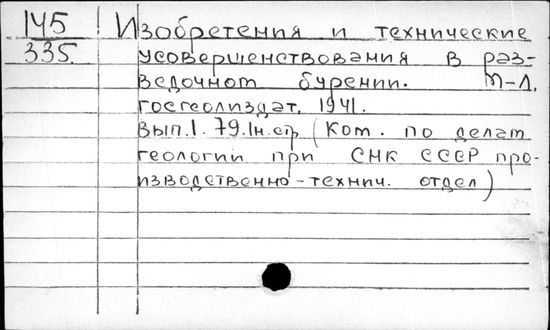 145
335.
Изобретения и технические
усовершенствования в раз-
ведочном бурении. М-Л,
госгеолиздат, 1941.
Вып.1. 79.1н.стр (Ком. по делам
геологии при СНК СССР про-
изводственно-технич. отдел)